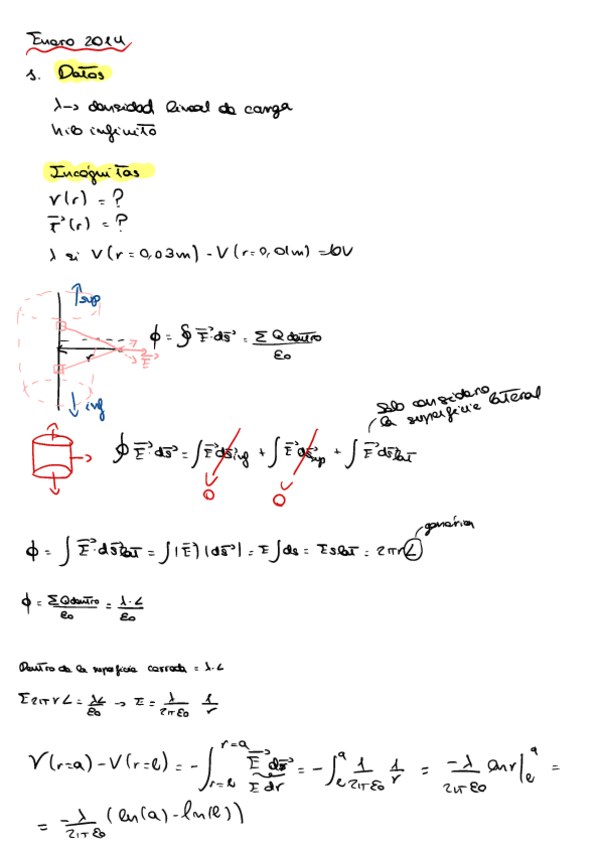 Enero 2014
1. Datos
λ → densidad lineal de carga
hilo infinito
Incógnitas
V(r) = ?
E⃗(r) = ?
λ si V(r = 0,03m) - V(r = 0,01m) = 10V
sup
r
E⃗
inf
ϕ = ∮ E⃗·ds⃗ = Σ Q dentro / ε0
Solo considero
la superficie lateral
∮ E⃗·ds⃗ = ∫ E⃗ ds⃗ inf + ∫ E⃗ ds⃗ sup + ∫ E⃗·ds⃗ lat
0 0
genérica
ϕ = ∫ E⃗·ds⃗ lat = ∫ |E⃗| |ds⃗| = E ∫ ds = E slat = 2πr L
ϕ = Σ Q dentro / ε0 = λ·L / ε0
Dentro de la superficie cerrada = λ·L
E 2πr L = λL / ε0 → E = λ / 2πε0 1/r
V(r=a) - V(r=l) = - ∫ r=l r=a E⃗ ds⃗ = - ∫ l a 1 / 2πε0 1/r = -λ / 2πε0 ln r | l a =
E dr
= -λ / 2πε0 (ln(a) - ln(l))